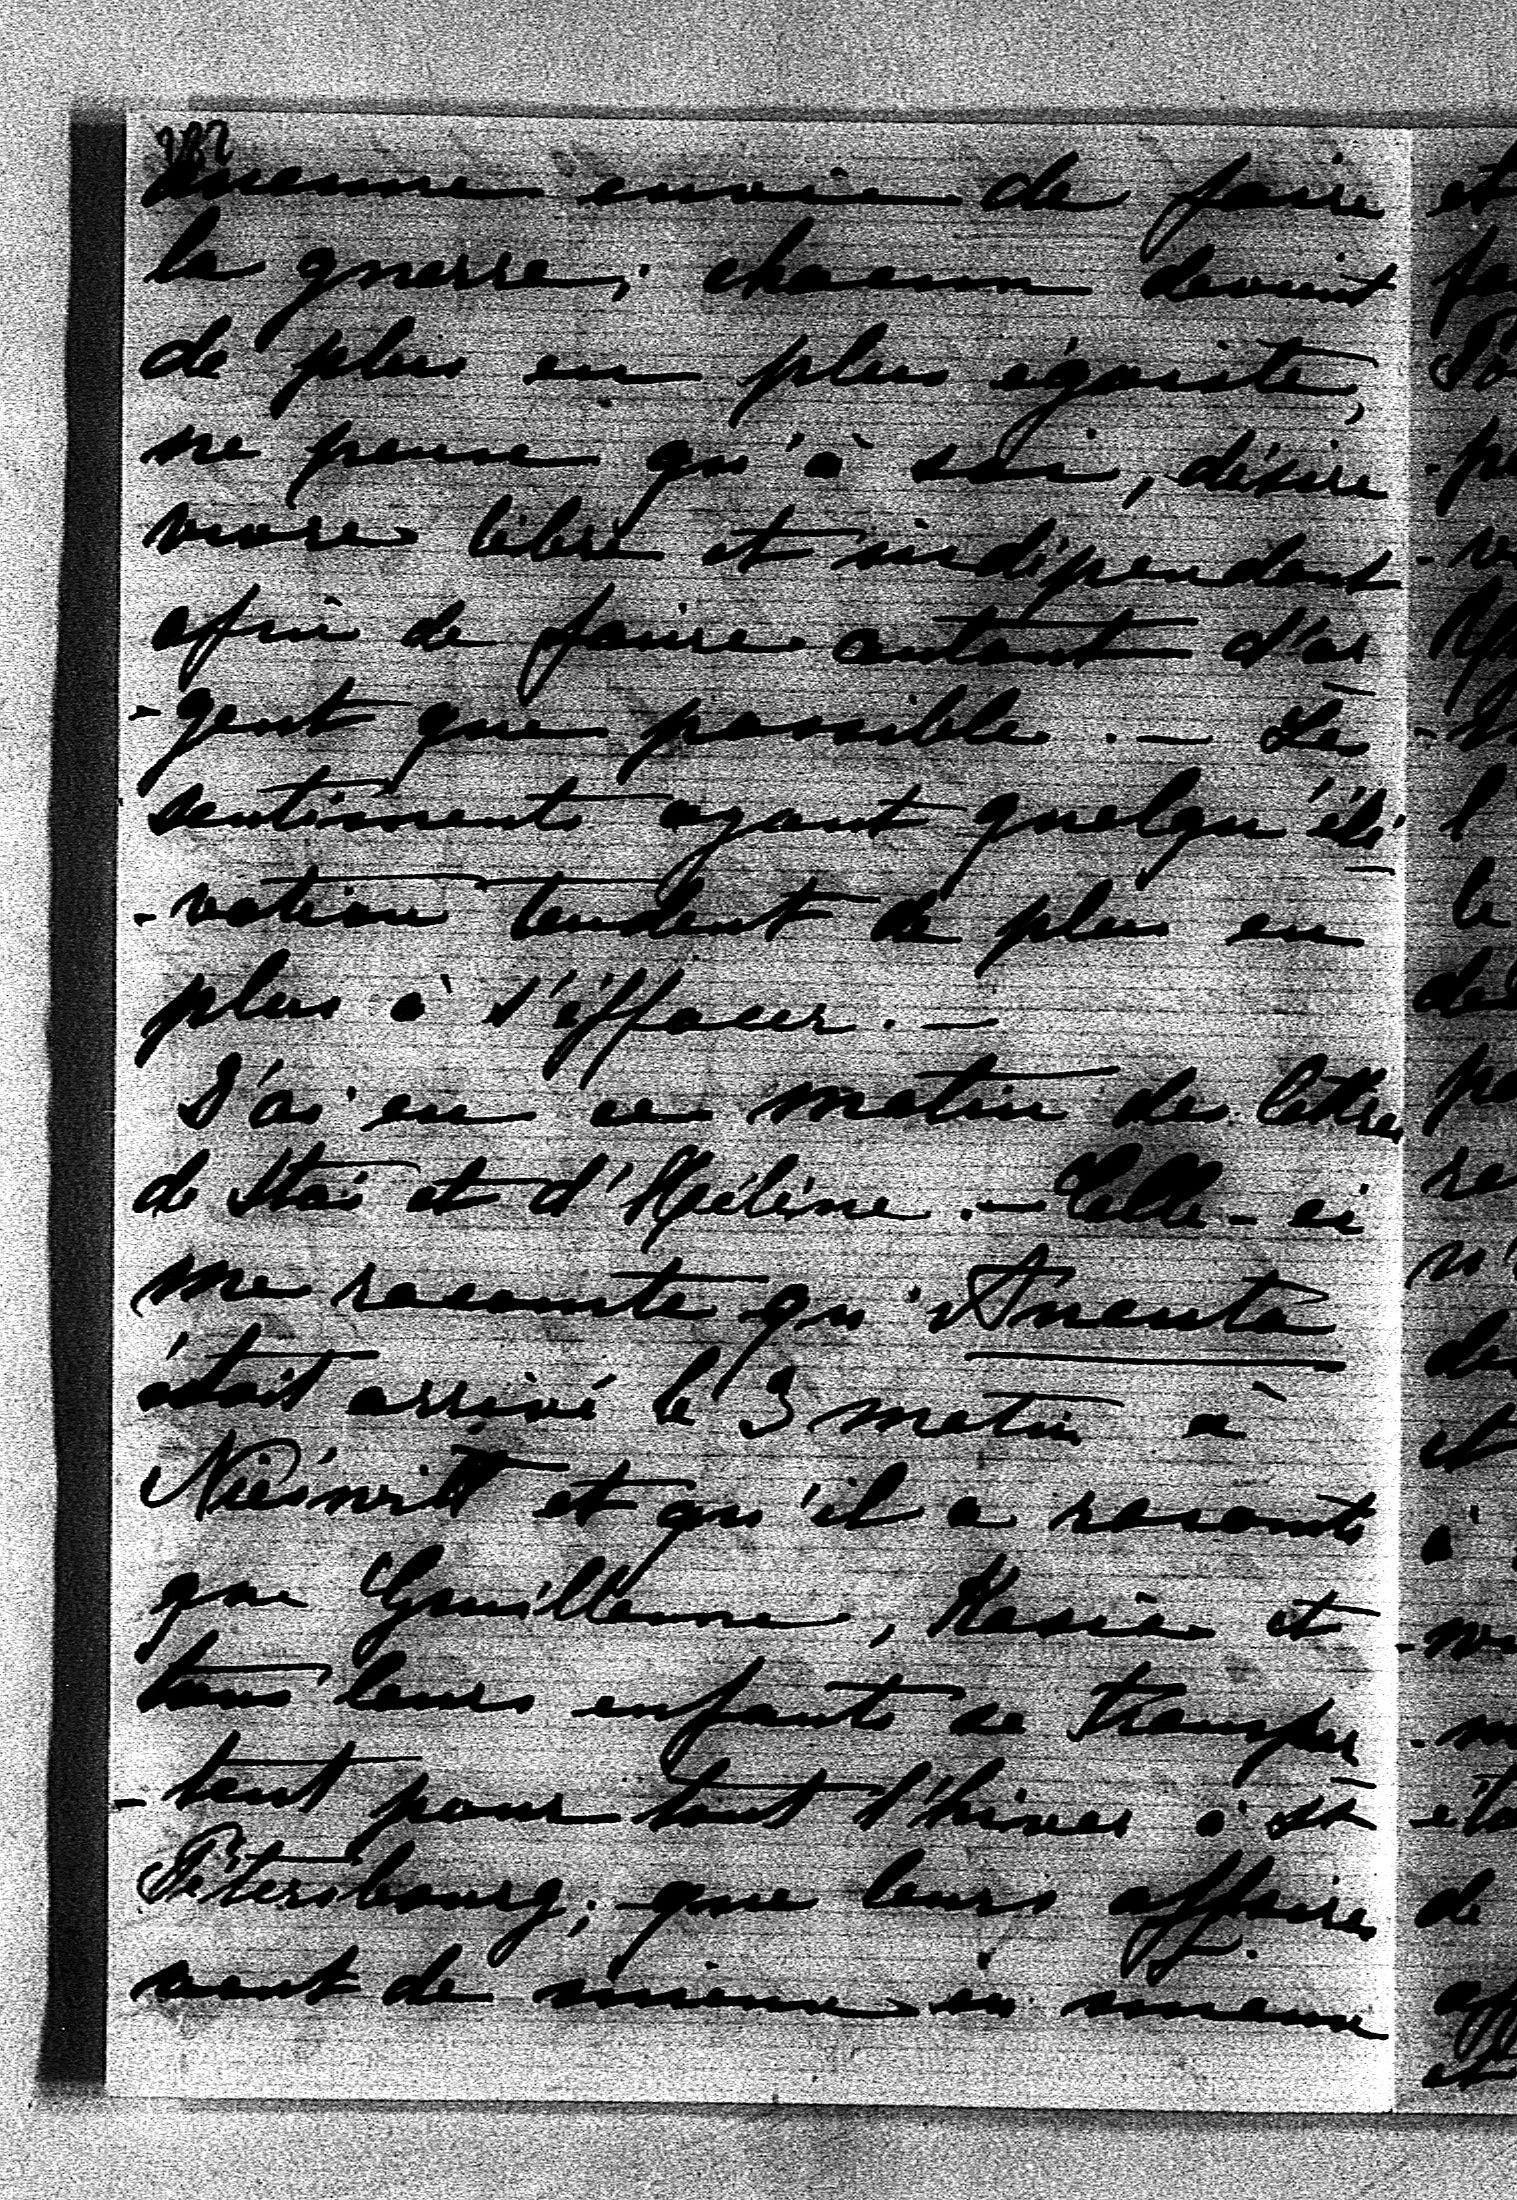 aucune envie de faire
la guerre; chacun devient
de plus en plus égoiste,
ne pense qu'à soi, désire
vivre libre et indépendant
afin de faire autant d'ar
-gent que possible. — Les
sentiments ayant quelqu'élé
-vation tendent de plus en
plus à s'éffacer. —
J'ai eu ce matin des lettres
de et d'Hélène. — Celle-ci
me raconte qu'Aneuta
était arrivé le 3 matin à
et qu'il a raconté
que Guillaume, et
tous leurs enfants se transpor
-tent pour tout l'hiver à St
Pétersbourg; que leurs affaires
vont de mieux en mieux
et
de
et
à
de